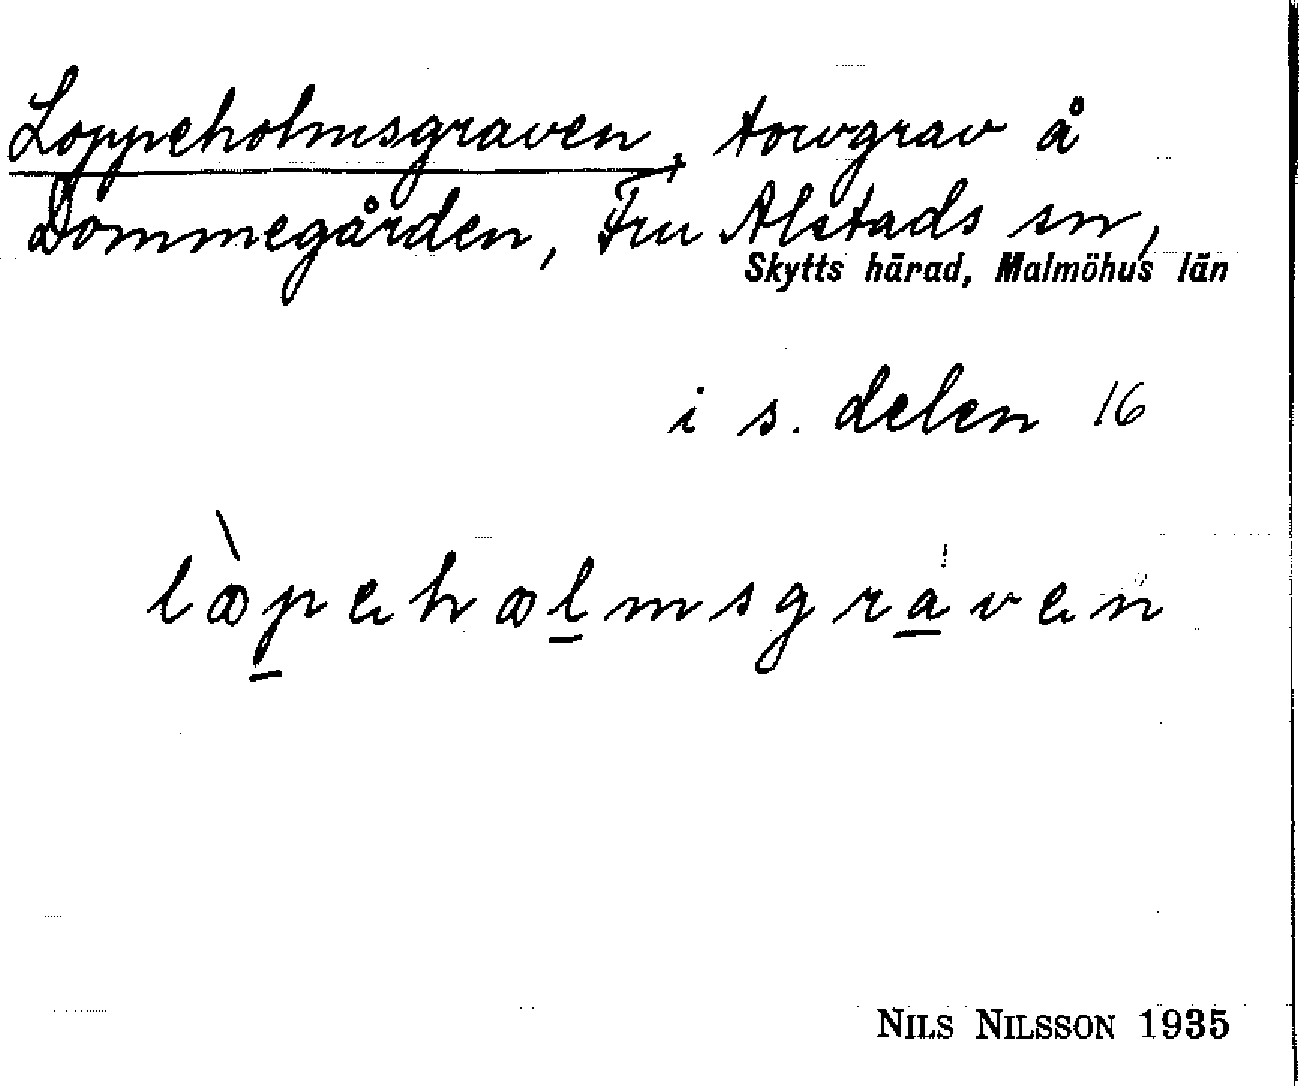 Loppeholmsgraven, torvgrav å
Dommegården, Fru Alstads sn,
Skytts härad, Malmöhus län
i s. delen 16
lꝏ̀pehꝏlmsgraven
NILS NILSSON 1935